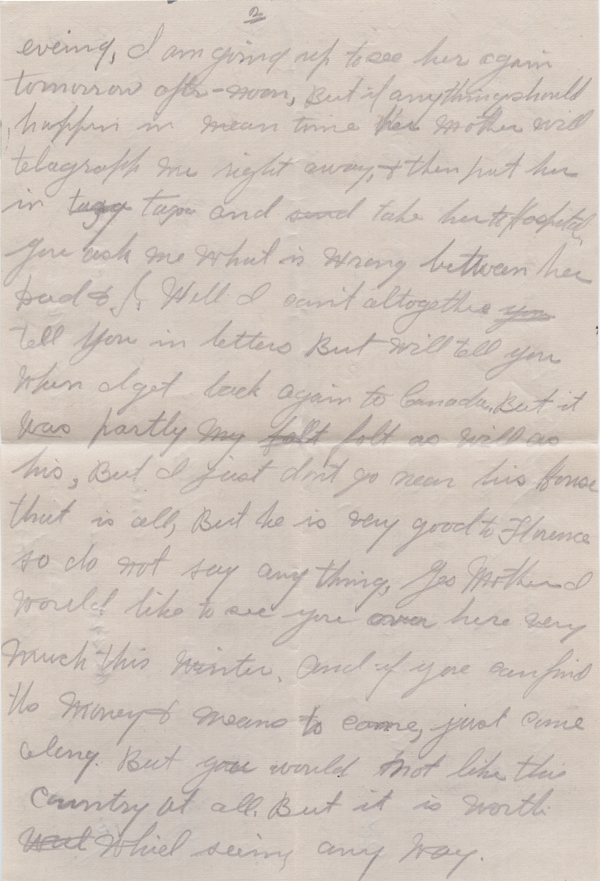 2
eveing, I am going up to see her again
tomorrow aftr-noon, But if anything should
happin in mean time her Mother will
telagraph me right away, & then put her
in taxa and send take her to Hospital,
You ask me What is Wrong between her
Dad & I. Well I can't altogether you
tell You in letters But Will tell you
When I get back again to Canada, But it
Was partly My falt folt as will as
his, But I just don't go near his house
that is all, But he is very good to Florence
so do not say any thing, Yes Mother I
Would like to see you over here very
Much this Winter, And if you can find
the Money & means to come, just come
along. But you would Not like this
Country at all. But it is Worth
Whiel seeing any Way.